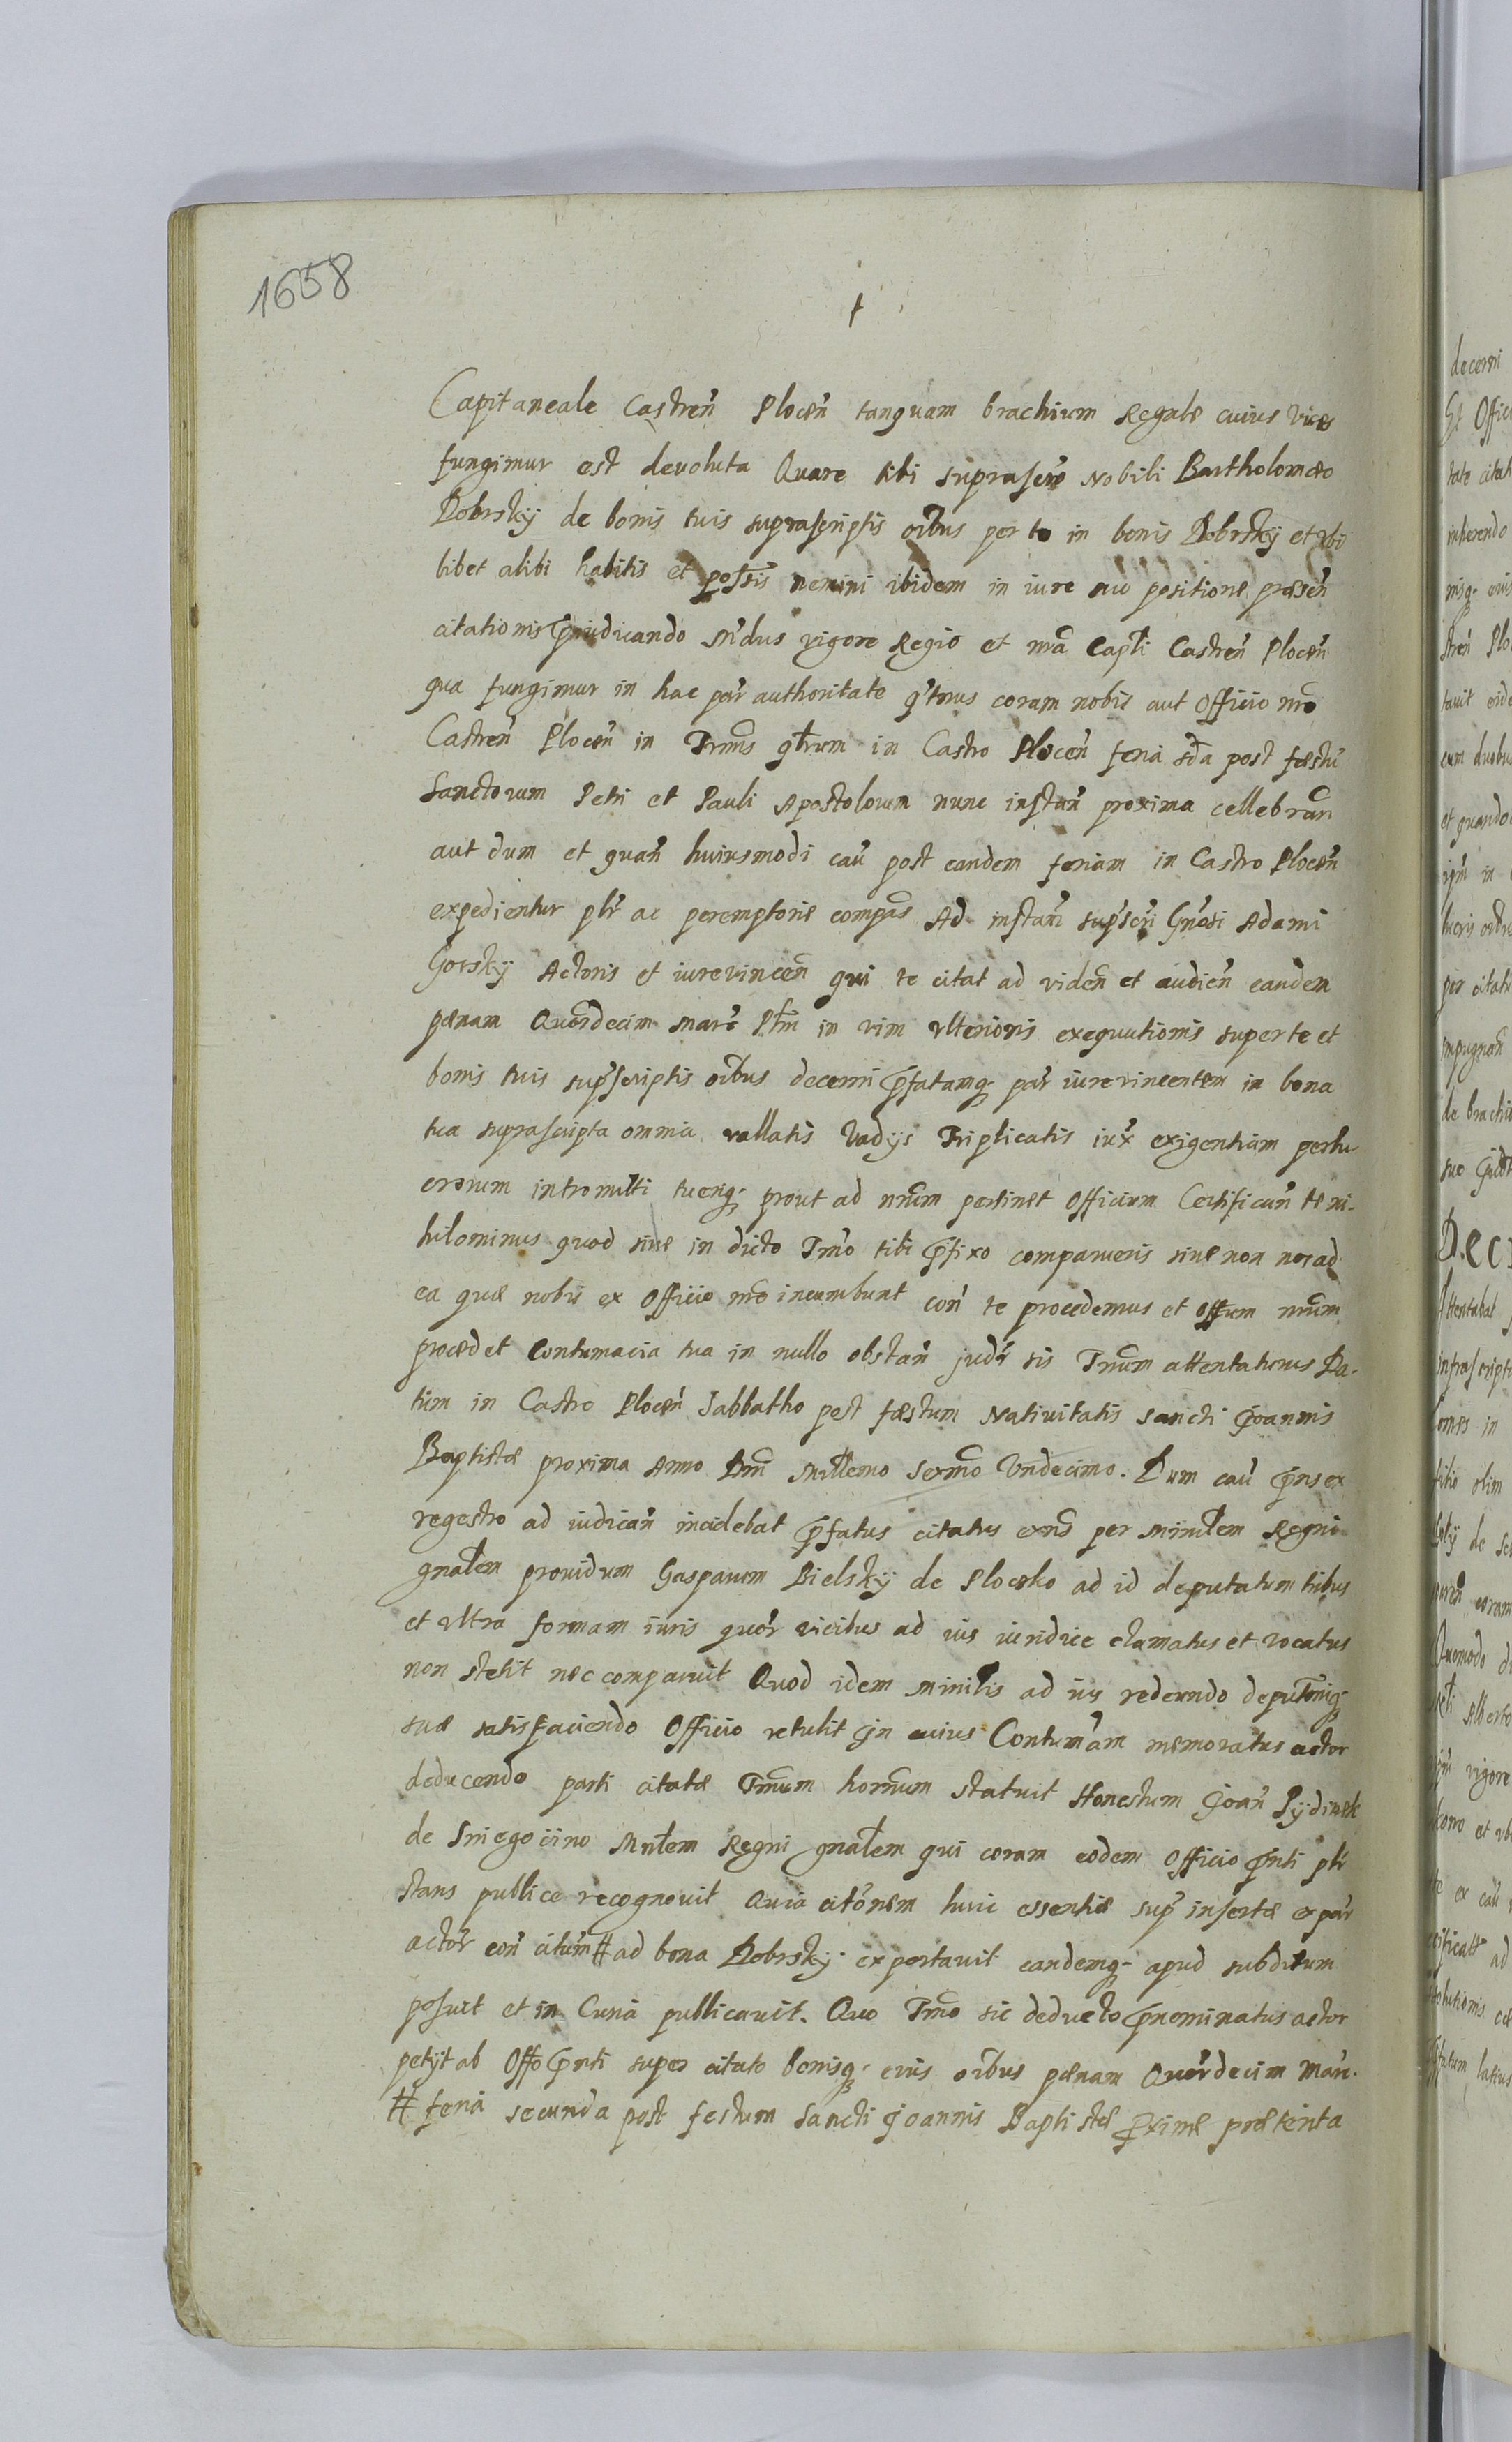 1658
Capitaneale Castren̄ Plocen̄ tanquam brachium Regale cuius vices
fungimur est devoluta Quare tibi suprascrō Nobili Bartholomæo
Dobrskÿ de bonis tuis suprascriptis oibus per te in bonis Dobrskÿ et vbi
libet alibi habitis et possis nemini ibidem in iure suo positione præsen̄
citationis p̄iudicando Mn̄dus vigore Regio et nrā Capli Castren̄ Plocen̄
qua fungimur in hac par authoritate q̄tenus coram nobis aut Officio nrō
Castren̄ Plocen̄ in Trmis q̄lrum in Castro Plocen̄ feria sd̄a post fæstū
Sanctorum Petri et Pauli Apostolorum nunc instan̄ proxima cellebran̄
aut dum et quan̄ huiusmodi cau post eandem feriam in Castro Plocen̄
expedientur plr ac peremptorie compās Ad instan̄ suprascri Gn̄osi Adami
Gorskÿ Actoris et iurevincen̄ qui te citat ad viden̄ et audien̄ eandem
pænam Quordecim Marc Plm in vim vlterioris exequutionis super te et
bonis tuis supscriptis oibus decerni p̄fatamq. par iurevincentem in bona
tua suprascripta omnia vallatis Vadÿs Triplicatis iux exigentiam perlu-
crorum intromitti tuenq. prout ad nrūm pertinet Officium Certifican̄ te ni-
hilominus quod siue in dicto Trmo tibi p̄fixo comparueris siue non nos ad
ea quæ nobis ex Officio nrō incumbunt con̄ te procedemus et Offium nrūm
procedet Contumacia tua in nullo obstan̄ judr sis Trmum attentaturus Da-
tum in Castro Plocen̄ Sabbatho post fæstum Nativitatis Sancti Joannis
Baptistæ proxima Anno Dm̄ Millemo Sexmo Vndecimo. Dum cau p̄ns ex
regestro ad iudican̄ incidebat p̄fatus citatus exn̄s per Ministlem Regni
gnalem prouidum Gasparum Bielskÿ de Plocsko ad id deputatum tribus
et vltra formam iuris quor vicibus ad ius iuridice clamatus et vocatus
non stetit nec comparuit Quod idem Minilis ad ius reddendo deputōniq.
suæ satisfaciendo Officio retulit In cuius Contumam memoratus actor
deducendo parti citatæ Trmum hornum statuit Honestum Joan̄
de Sniegocino Mnlem Regni gnalem qui coram eodem Officio p̄nti plr
stans publice recognouit Quia citōnem huic essentiæ sup insertæ ex par
actor con̄ citum # ad bona Dobrskÿ exportauit eandemq. apud subditum
posuit et in Curia publicauit. Quo Trmo sic deducto p̄nominatus actor
petÿt ab Offo p̄nti super citato bonisq. eius oibus pænam Quordecim Mar.
# feria secunda post festum Sancti Joannis Baptistæ p̄xime præterita
decerni
Et Offici
tate citat
inhærendo
nisq. eius
tauit eide
cum duobus
et quando
per citatū
impugnan̄
de brachi
Attentabat
infrascript
filio olim
coram
Quomodo
Alberto
vigore
et vbi
ex cau